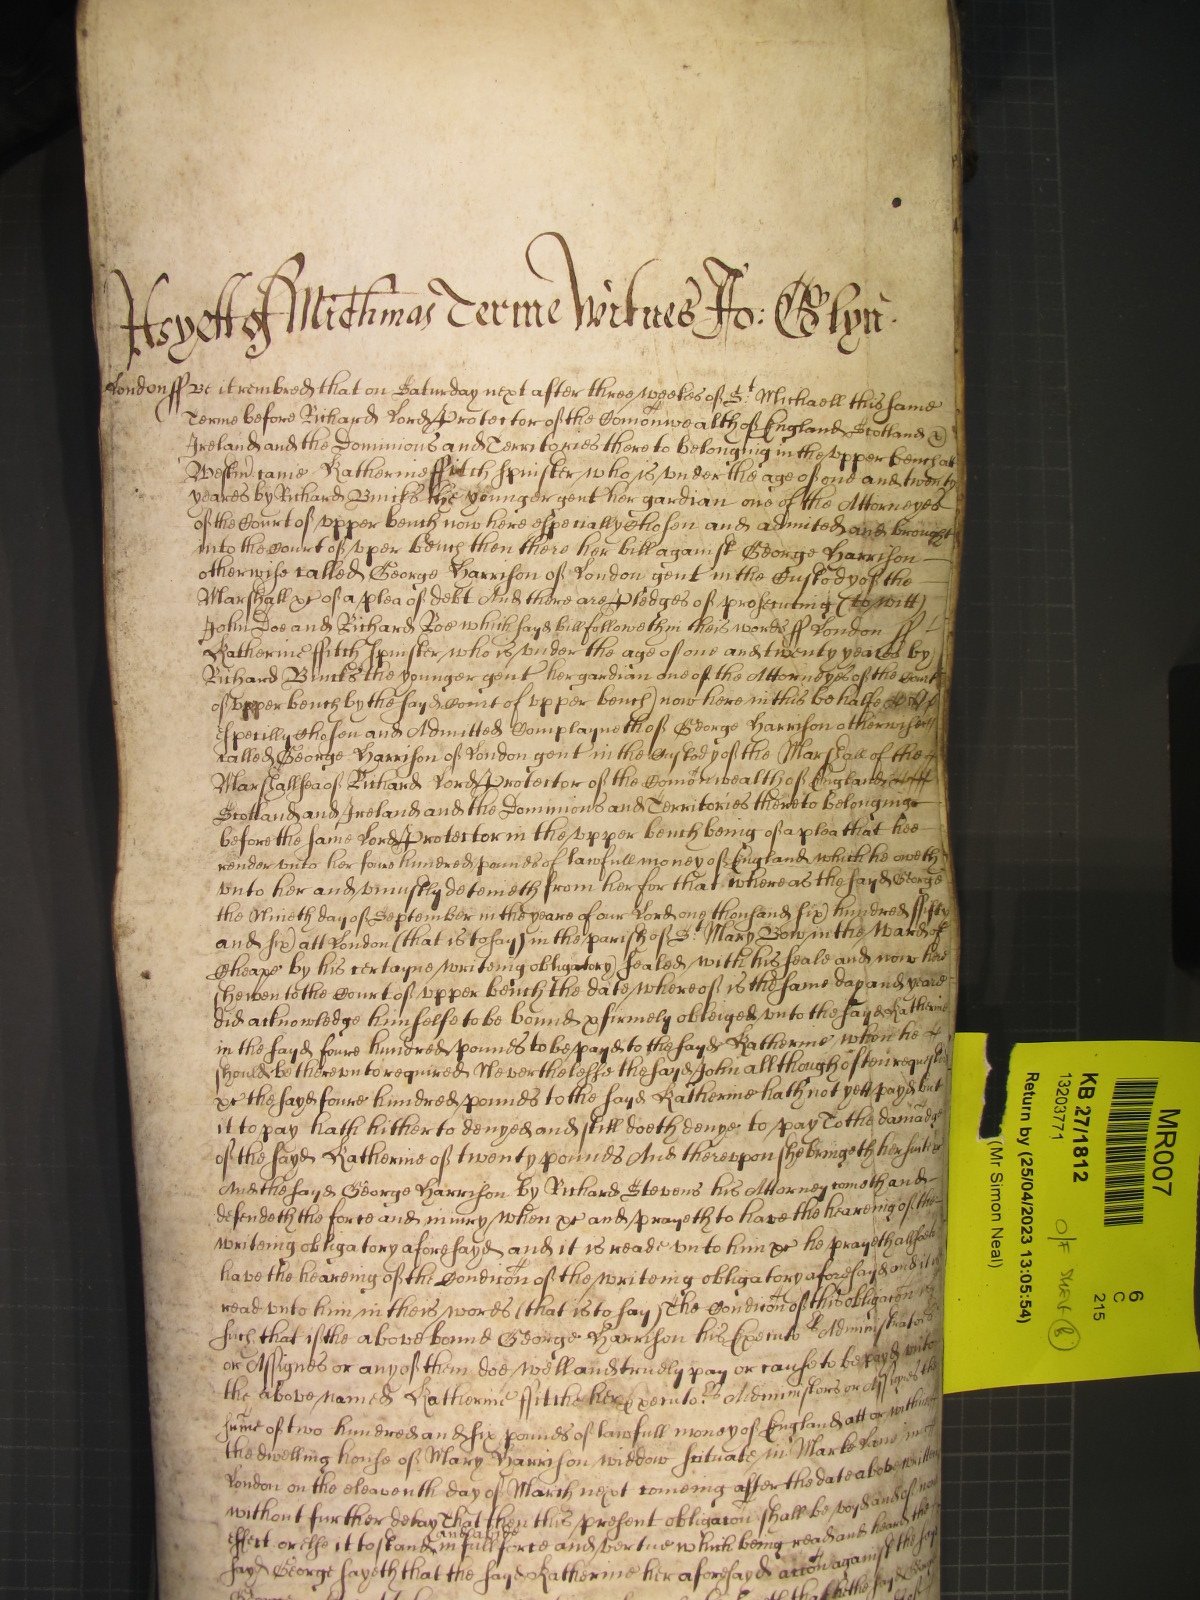 As yett of Michmas Terme Witnes Jo: Glyn
London ff Be it rembred that on Saturday next after three weekes of St. Michaell this same
Terme before Richard Lord Protector of the Comonwealth of England Scotland &
Ireland and the Dominions and Territories thereto belonging in the upper bench att
Westm came Katherine ffitch Spinster who is under the age of one and twenty
yeares by Richard Bincks the younger gent her gardian one of the Attorneyes
of the Court of upper bench now here especially chosen and admited and brought
into the Court of upper bench then there her bill against George Harrison
otherwise called George Harrison of London gent in the Custody of the
Marshall &c of a plea of debt And there are Pledges of prosecuting (to witt)
John Doe and Richard Roe which sayd bill followeth in theis words ff London ff
Katherine ffitch Spinster who is under the age of one and twenty yeares by
Richard Bincks the younger gent her gardian one of the Attorneyes of the Court
of upper bench by the sayd Court of upper bench) now here in this behalfe
specially Chosen and Admitted Complayneth of George Harrison otherwise
called George Harrison of London gent in the Custody of the Marshall of the
Marshallsea of Richard Lord Protector of the Comonwealth of England
Scotland and Ireland and the Dominions and Territories thereto belonging
before the same Lord Protector in the upper bench being of a plea that hee
render unto her foure hundred pounds of lawfull money of England which he oweth
unto her and uniustly deteineth from her for that whereas the sayd George
the Nineth day of September in the yeare of our Lord one thousand six hundred fifty
and six att London (that is to say) in the parish of St. Mary Bow in the Ward of
Cheape by his certayne writeing obligatory sealed with his seale and now here
shewen to the Court of upper bench the date whereof is the same day and yeare
did acknowledge himselfe to be bound & firmely obleiged unto the sayd Katherine
in the sayd foure hundred pounds to be payd to the sayd Katherine when he
should be thereunto required Neverthelesse the sayd John allthough often requested
&c the sayd foure hundred pounds to the sayd Katherine hath not yett payd but
it to pay hath hitherto denyed and still doeth denye to pay To the damadge
of the sayd Katherine of twenty pounds And thereupon she bringeth her suite &c
And the sayd George Harrison by Richard Stevens his Attorney cometh and
defendeth the force and iniury when &c and prayeth to have the heareing of the
writeing obligatory aforesayd and it is reade unto him &c he prayeth allsoe to
have the heareing of the Condicon of the writeing obligatory aforesayd and it is
read unto him in theis words (that is to say) The Condicon of this obligacon is
such that if the above bound George Harrison his Executors Administrators
or Assignes or any of them doe well and truely pay or cause to be payd unto
the above named Katherine ffitch her Executors Administors or Assignes the
sume of two hundred and six pounds of lawfull money of England att or within
the dwelling house of Mary Harrison widdow scituate in Marke Lane in
London on the eleaventh day of March next comeing after the date above written
without further delay That then this present obligacon shall be voyd and of none
effect or else it to stand and abide in full force and vertue Which being read and heard the
sayd George sayeth that the sayd Katherine her aforesayd accon against the sayd
MR007
6
C
215
KB 27/1812
13203771
O/F
(Mr Simon Neal)
Return by (25/04/2023 13:05:54)